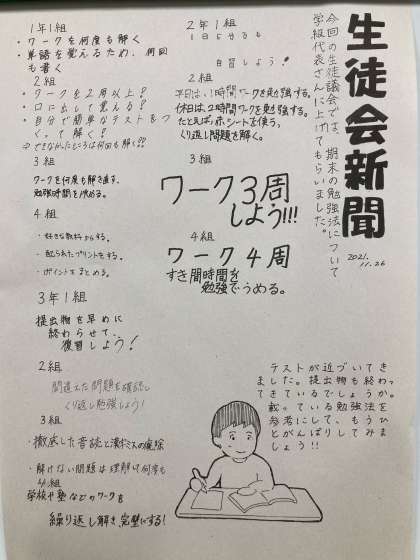 生徒会新聞
2021.11.26
今回の生徒議会では、期末の勉強法について
学級代表さんに上げてもらいました。
1年1組
・ワークを何度も解く
・単語を覚えるため、何回
も書く
2組
・ワークを2周以上?
・口に出して覚える?
・自分で簡単なテストをつ
くって解く?
⇨できなかったところは何回も解く??
3組
ワークを何度も解き直す。
勉強時間を決める。
4組
・好きな教科からする。
・配られたプリントをする。
・ポイントをまとめる。
2年1組
1日5分でも
自習しよう!
2組
平日は、1時間ワークを勉強する。
休日は、2時間ワークを勉強する。
たとえば、赤シートを使う。
くり返し問題を解く。
3組
ワーク3周
しよう!!!
4組
ワーク4周
すき間時間を
勉強でうめる。
3年1組
提出物を早めに
終わらせて、
復習しよう!
2組
間違えた問題を確認し
くり返し勉強しよう!
3組
徹底した音読と漢字ミスの
4組
・解けない問題は理解し何度も
学校や塾などのワークを
繰り返し解き完璧にする!
テストが近づいてき
ました。提出物も終わっ
てきているでしょうか。
載っている勉強法を
参考にして、もうひ
とがんばりしてみま
しょう!!